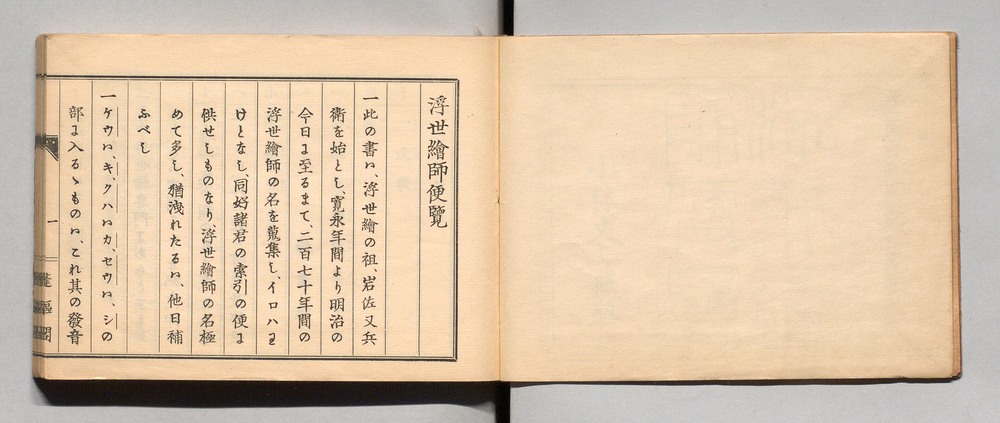 浮世繪師便覽
一此の書ハ、浮世繪の祖、岩佐又兵
衞を始とし、寛永年間より明治の
今日に至るまて、二百七十年間の
浮世繪師の名を蒐集し、イロハわ
けとなし、同好諸君の索引の便に
供せしものなり、浮世繪師の名極
めて多し、猶洩れたるハ、他日補
ふべし
一ケウハ、キ、クハハカ、セウハ、シの
部に入るゝものハ、これ其の發音
一